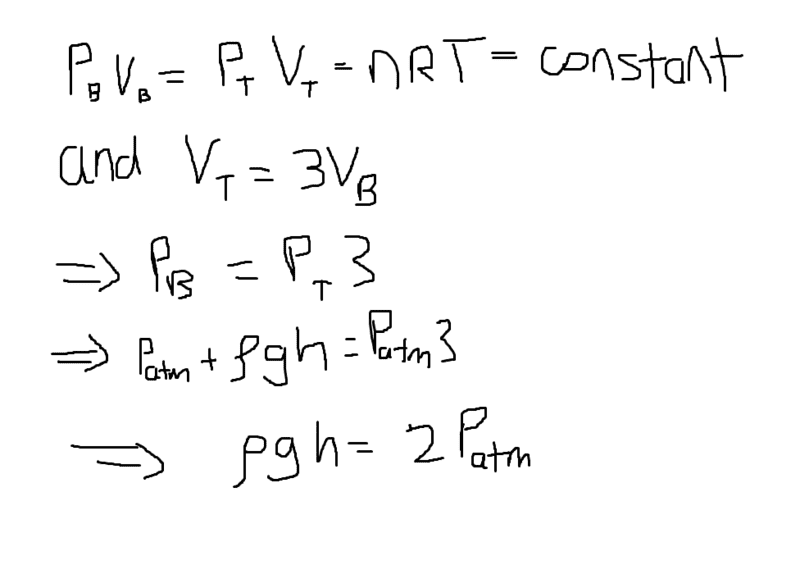 P_B V_B = P_T V_T = nRT = constant
and V_T = 3V_B
⇒ P_B = P_T 3
⇒ P_atm + ρgh = P_atm 3
⇒ ρgh = 2 P_atm